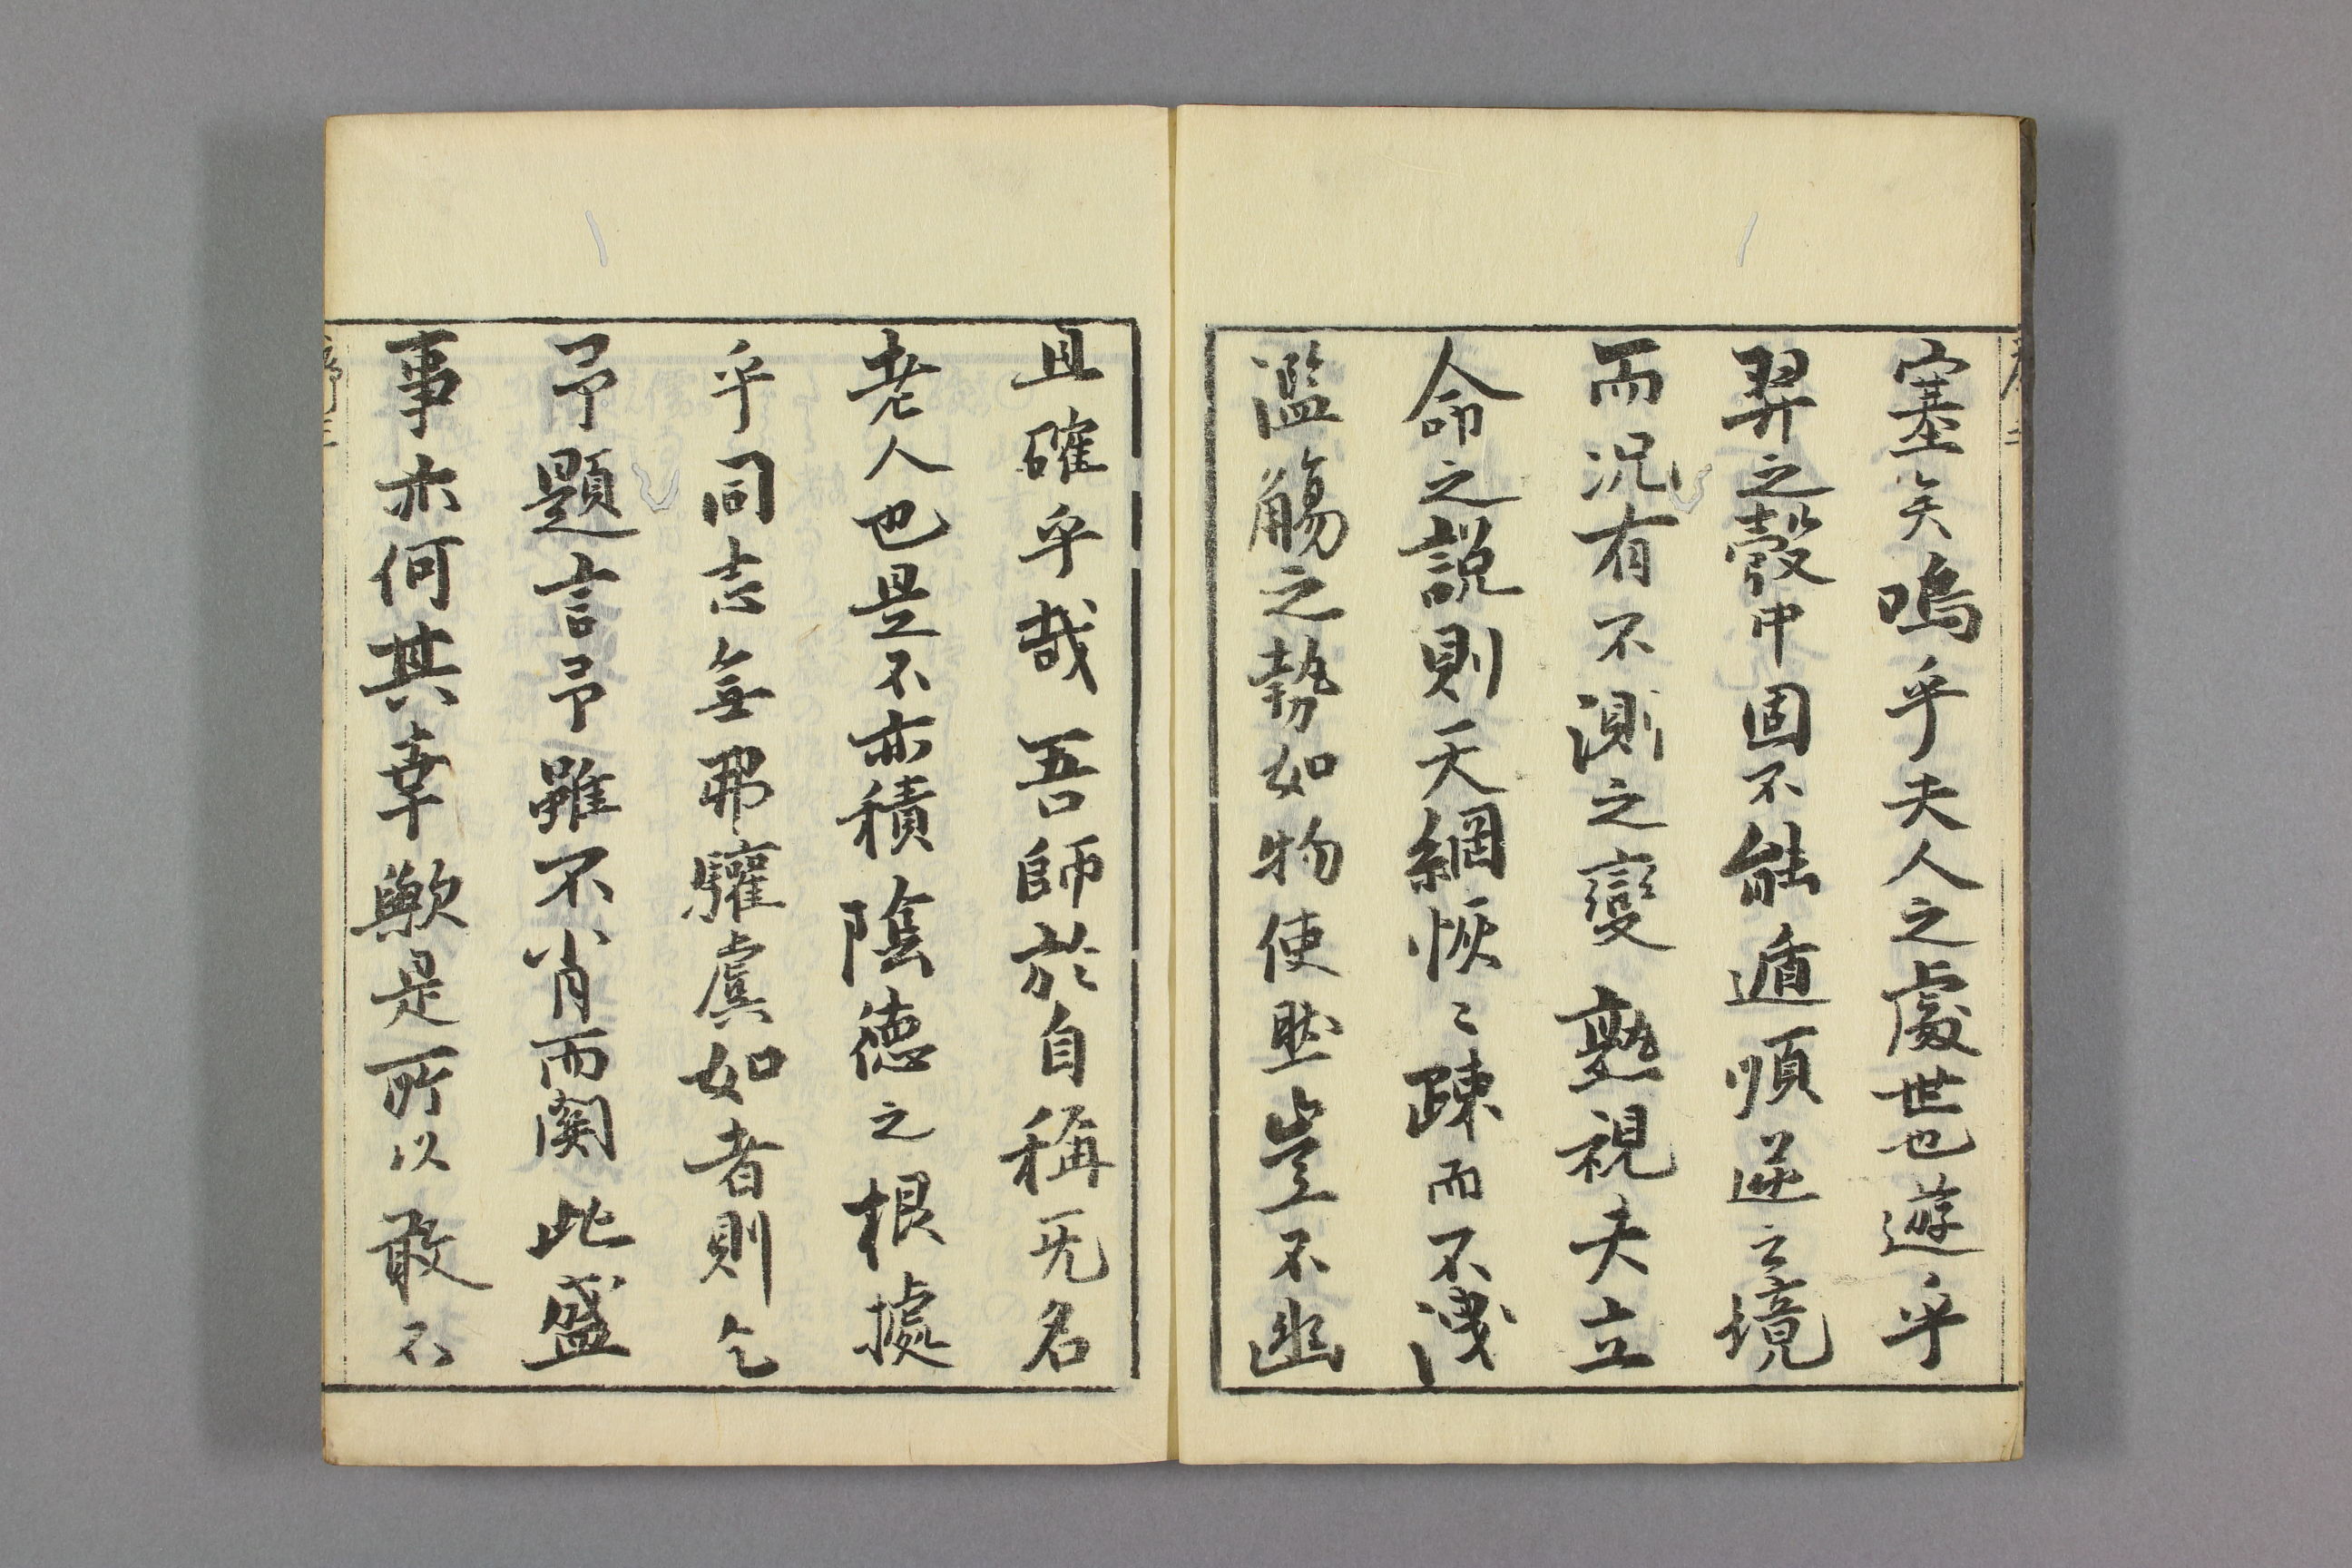 塞矣嗚乎夫人之處世也遊乎
羿之彀中固不能遁順逆之境
而況有不測之變熟視夫立
命之說則天網恢〻疎而不洩
濫觴之勢如物使然豈不幽
且確乎哉吾師於自稱无名
老人也是不亦積陰德之根據
乎同志無弗驩虞如者則乞
予題言予雖不肖而関此盛
事亦何其幸歟是所以敢不
序三